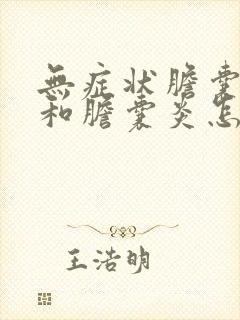 無症状膽囊
和膽囊炎怎
王浩明